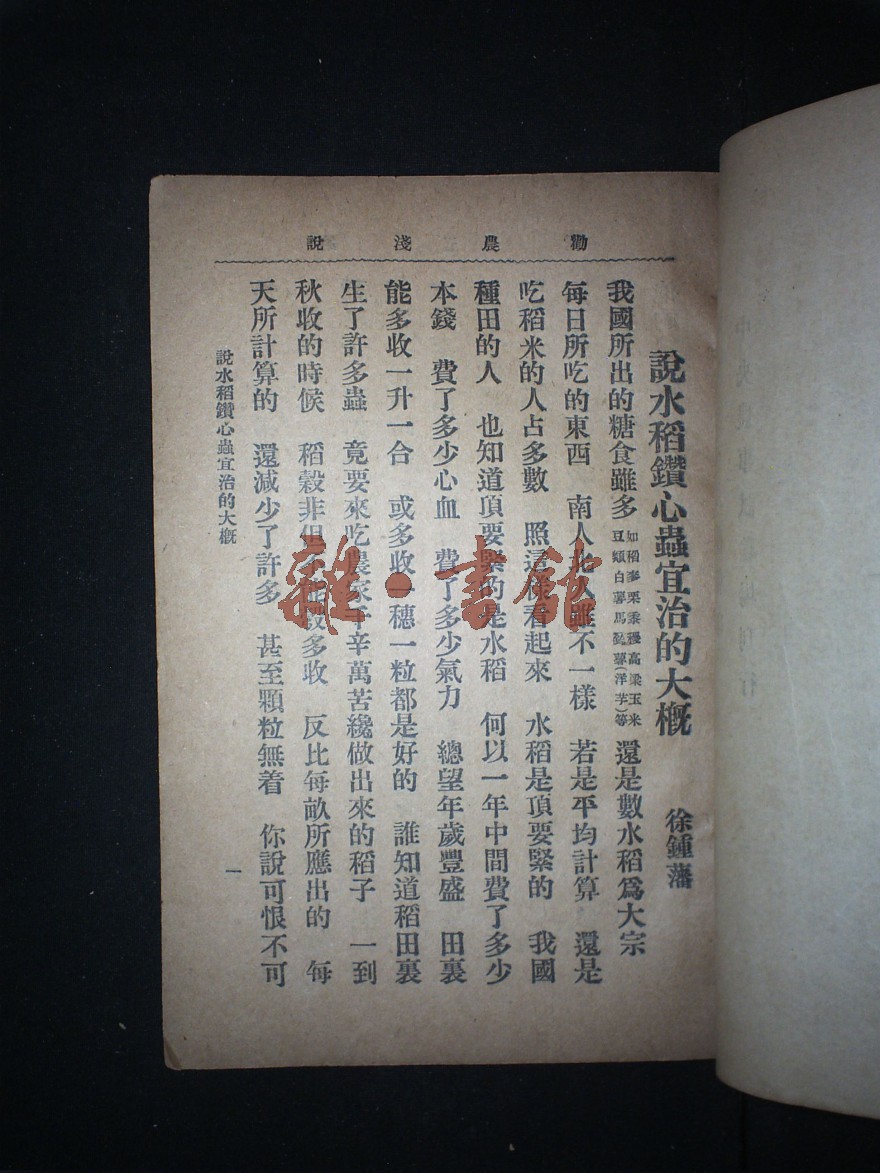 勸農淺說
說水稻鑽心蟲宜治的大概
徐鍾藩
我國所出的糖食雖多 如稻麥粟黍稷高粱玉米豆類白薯馬鈴薯(洋芋)等 還是數水稻爲大宗
每日所吃的東西 南人北人雖不一樣 若是平均計算 還是
吃稻米的人占多數 照這樣看起來 水稻是頂要緊的 我國
種田的人 也知道頂要緊的是水稻 何以一年中間費了多少
本錢 費了多少心血 費了多少氣力 總望年歲豐盛 田裏
能多收一升一合 或多收一穗一粒都是好的 誰知道稻田裏
生了許多蟲 竟要來吃農家千辛萬苦纔做出來的稻子 一到
秋收的時候 稻穀非但不能彀多收 反比每畝所應出的 每
天所計算的 還減少了許多 甚至顆粒無着 你說可恨不可
說水稻鑽心蟲宜治的大概
一
雜·書館